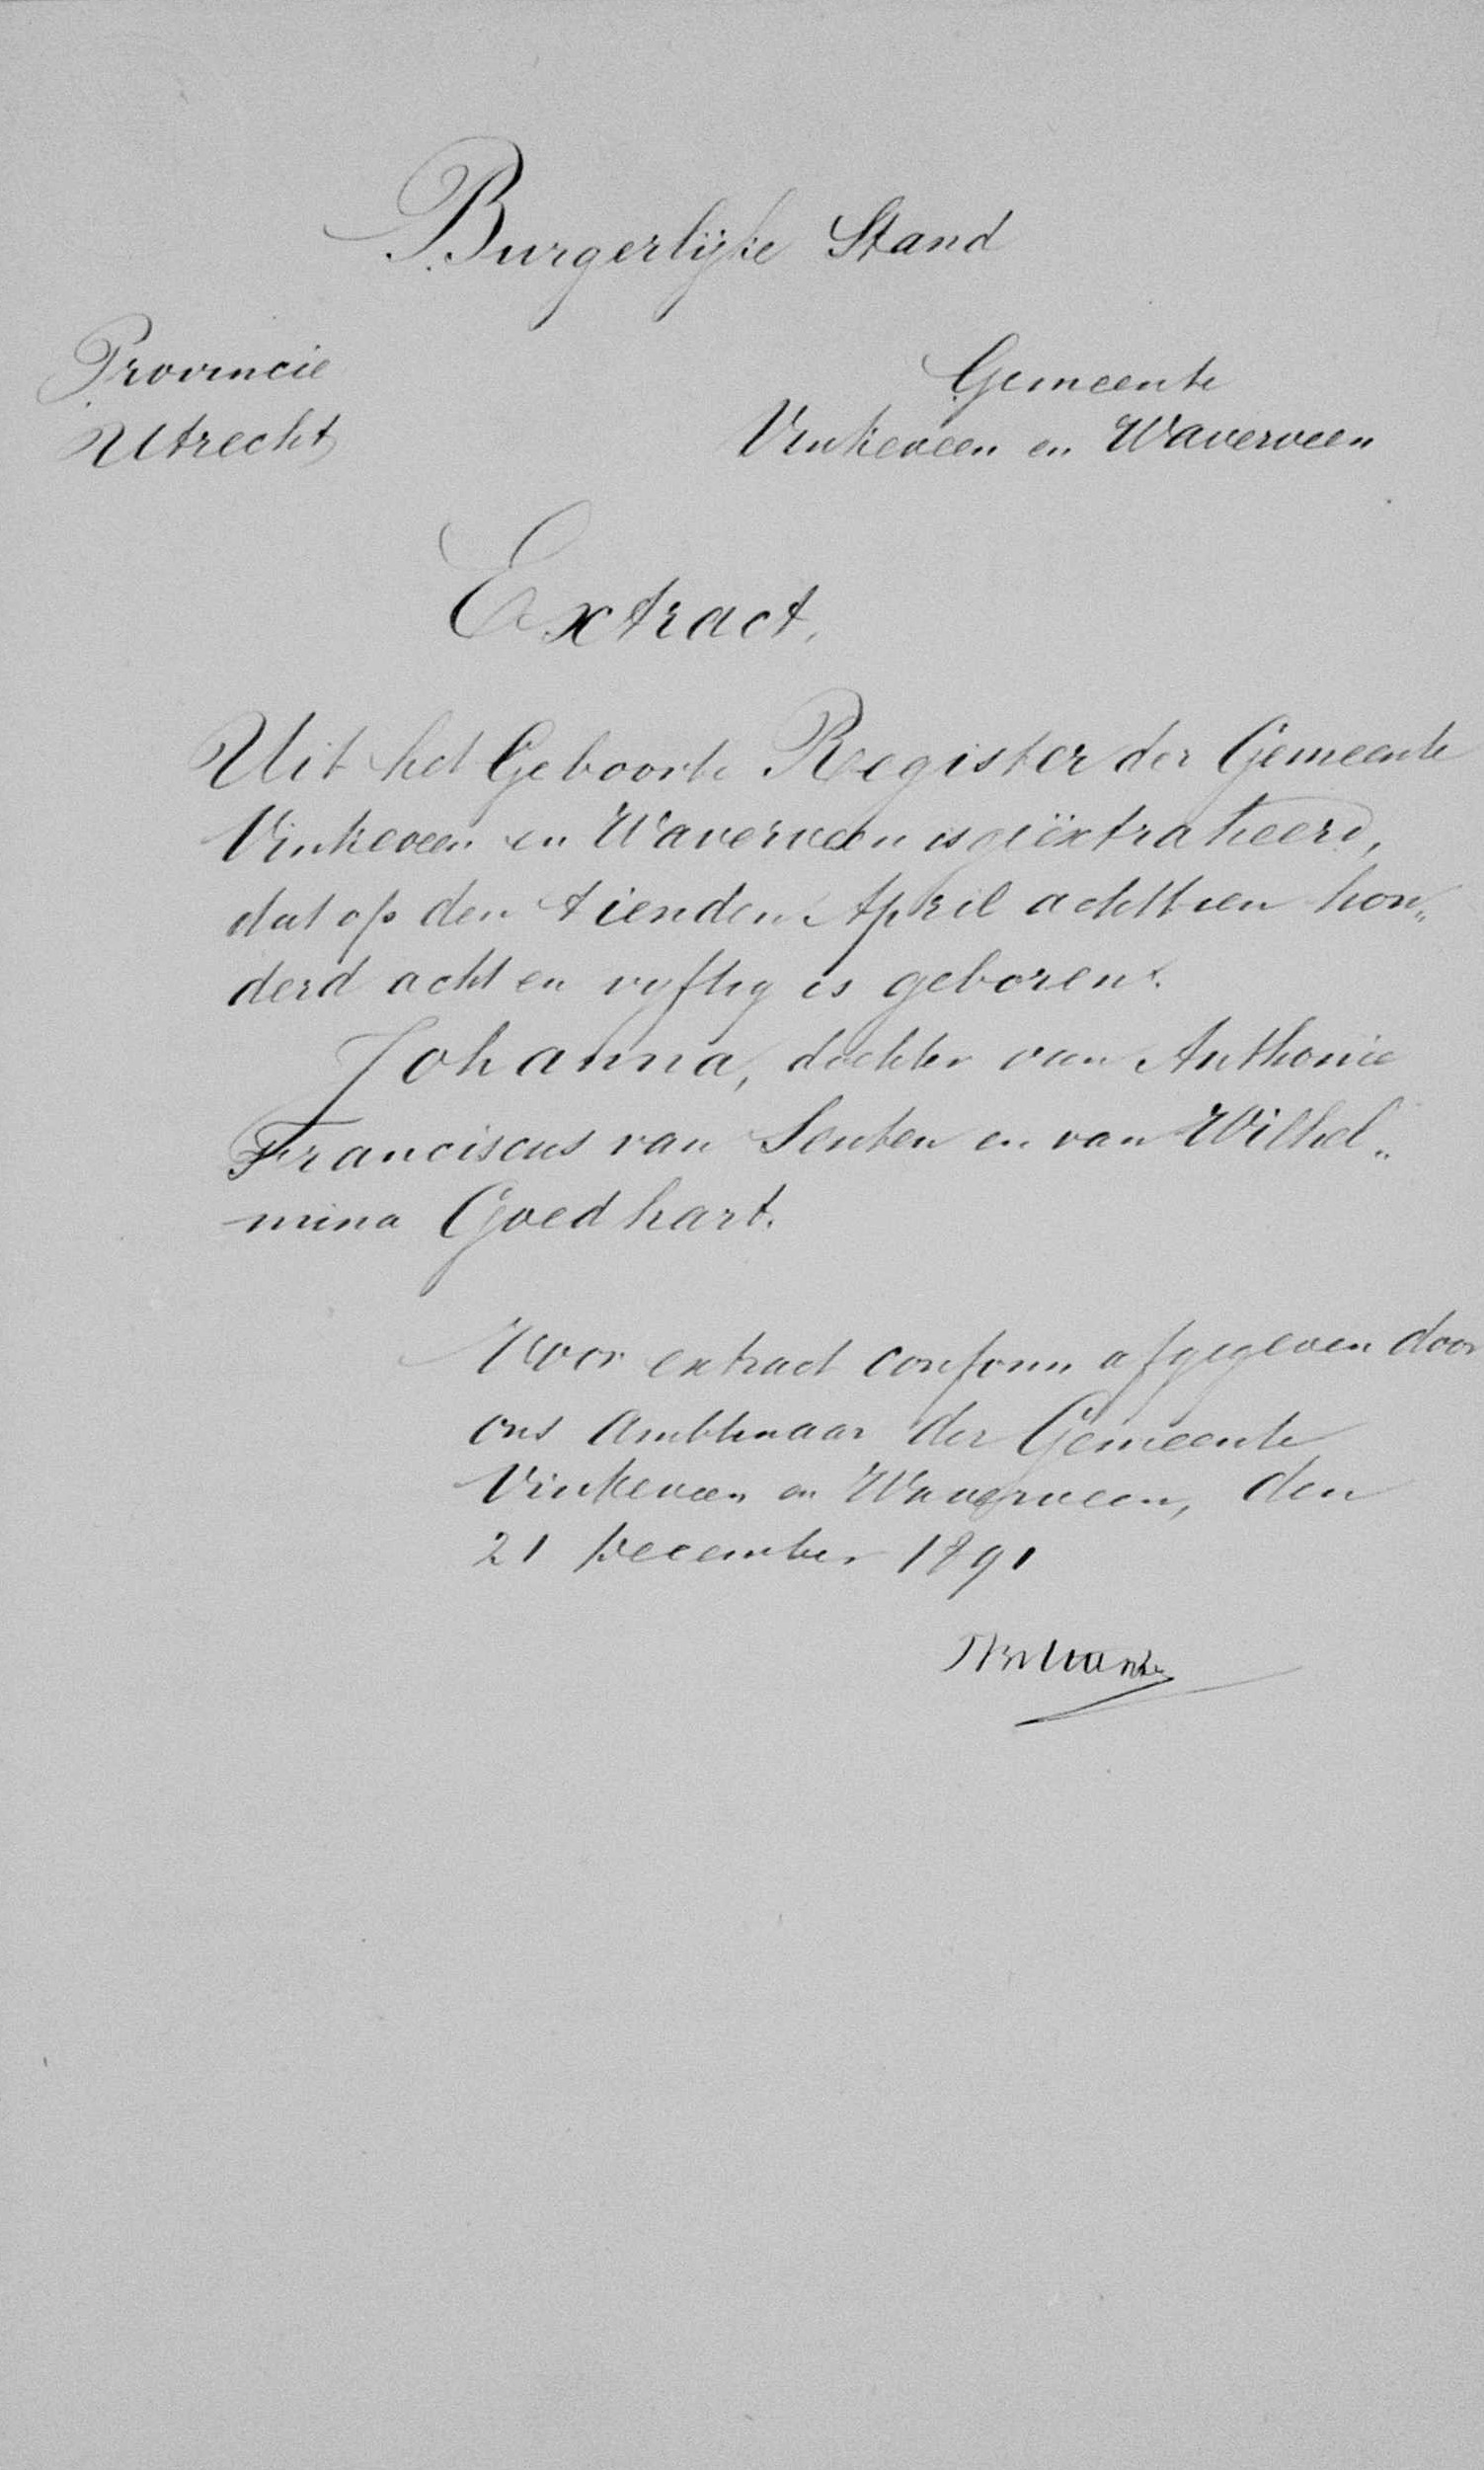 Burgerlijke Stand
Provincie
Utrecht
Gemeente
Vinkeveen en Waverveen
Extract.
Uit het Geboorte Register der Gemeente
Vinkeveen en Waverveen is geëxtraheerd,
dat op den tienden April achttien hon„
derd acht en vyftig is geboren:
Johanna, dochter van Anthonie
Franciscus van Senten en van Wilhel„
mina Goedhart.
Voor extract conform afgegeven door
ons Ambtenaar der Gemeente
Vinkeveen en Waverveen, den
21 December 1891